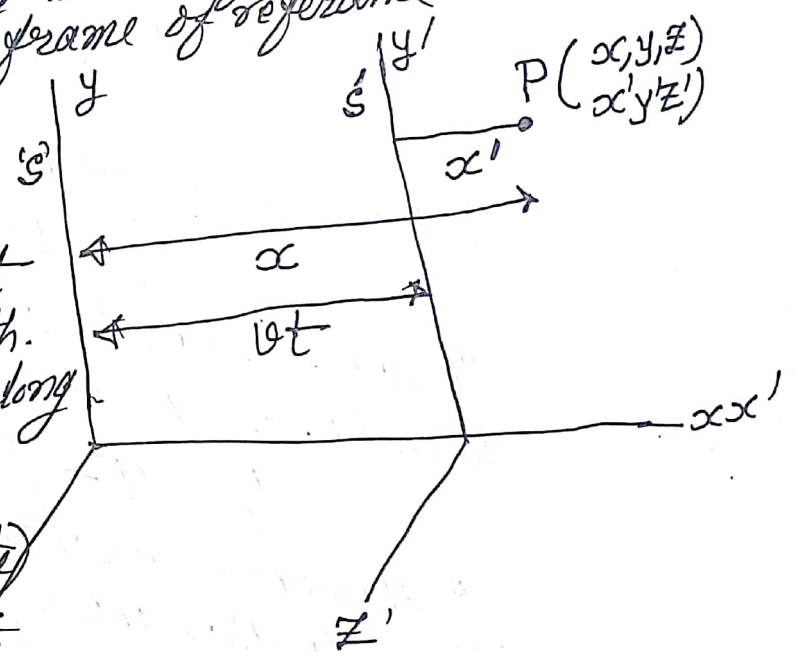 frame of reference
y
y'
S
S'
P(x,y,z)
x'y'z')
x'
x
vt
h.
long
xx'
z'